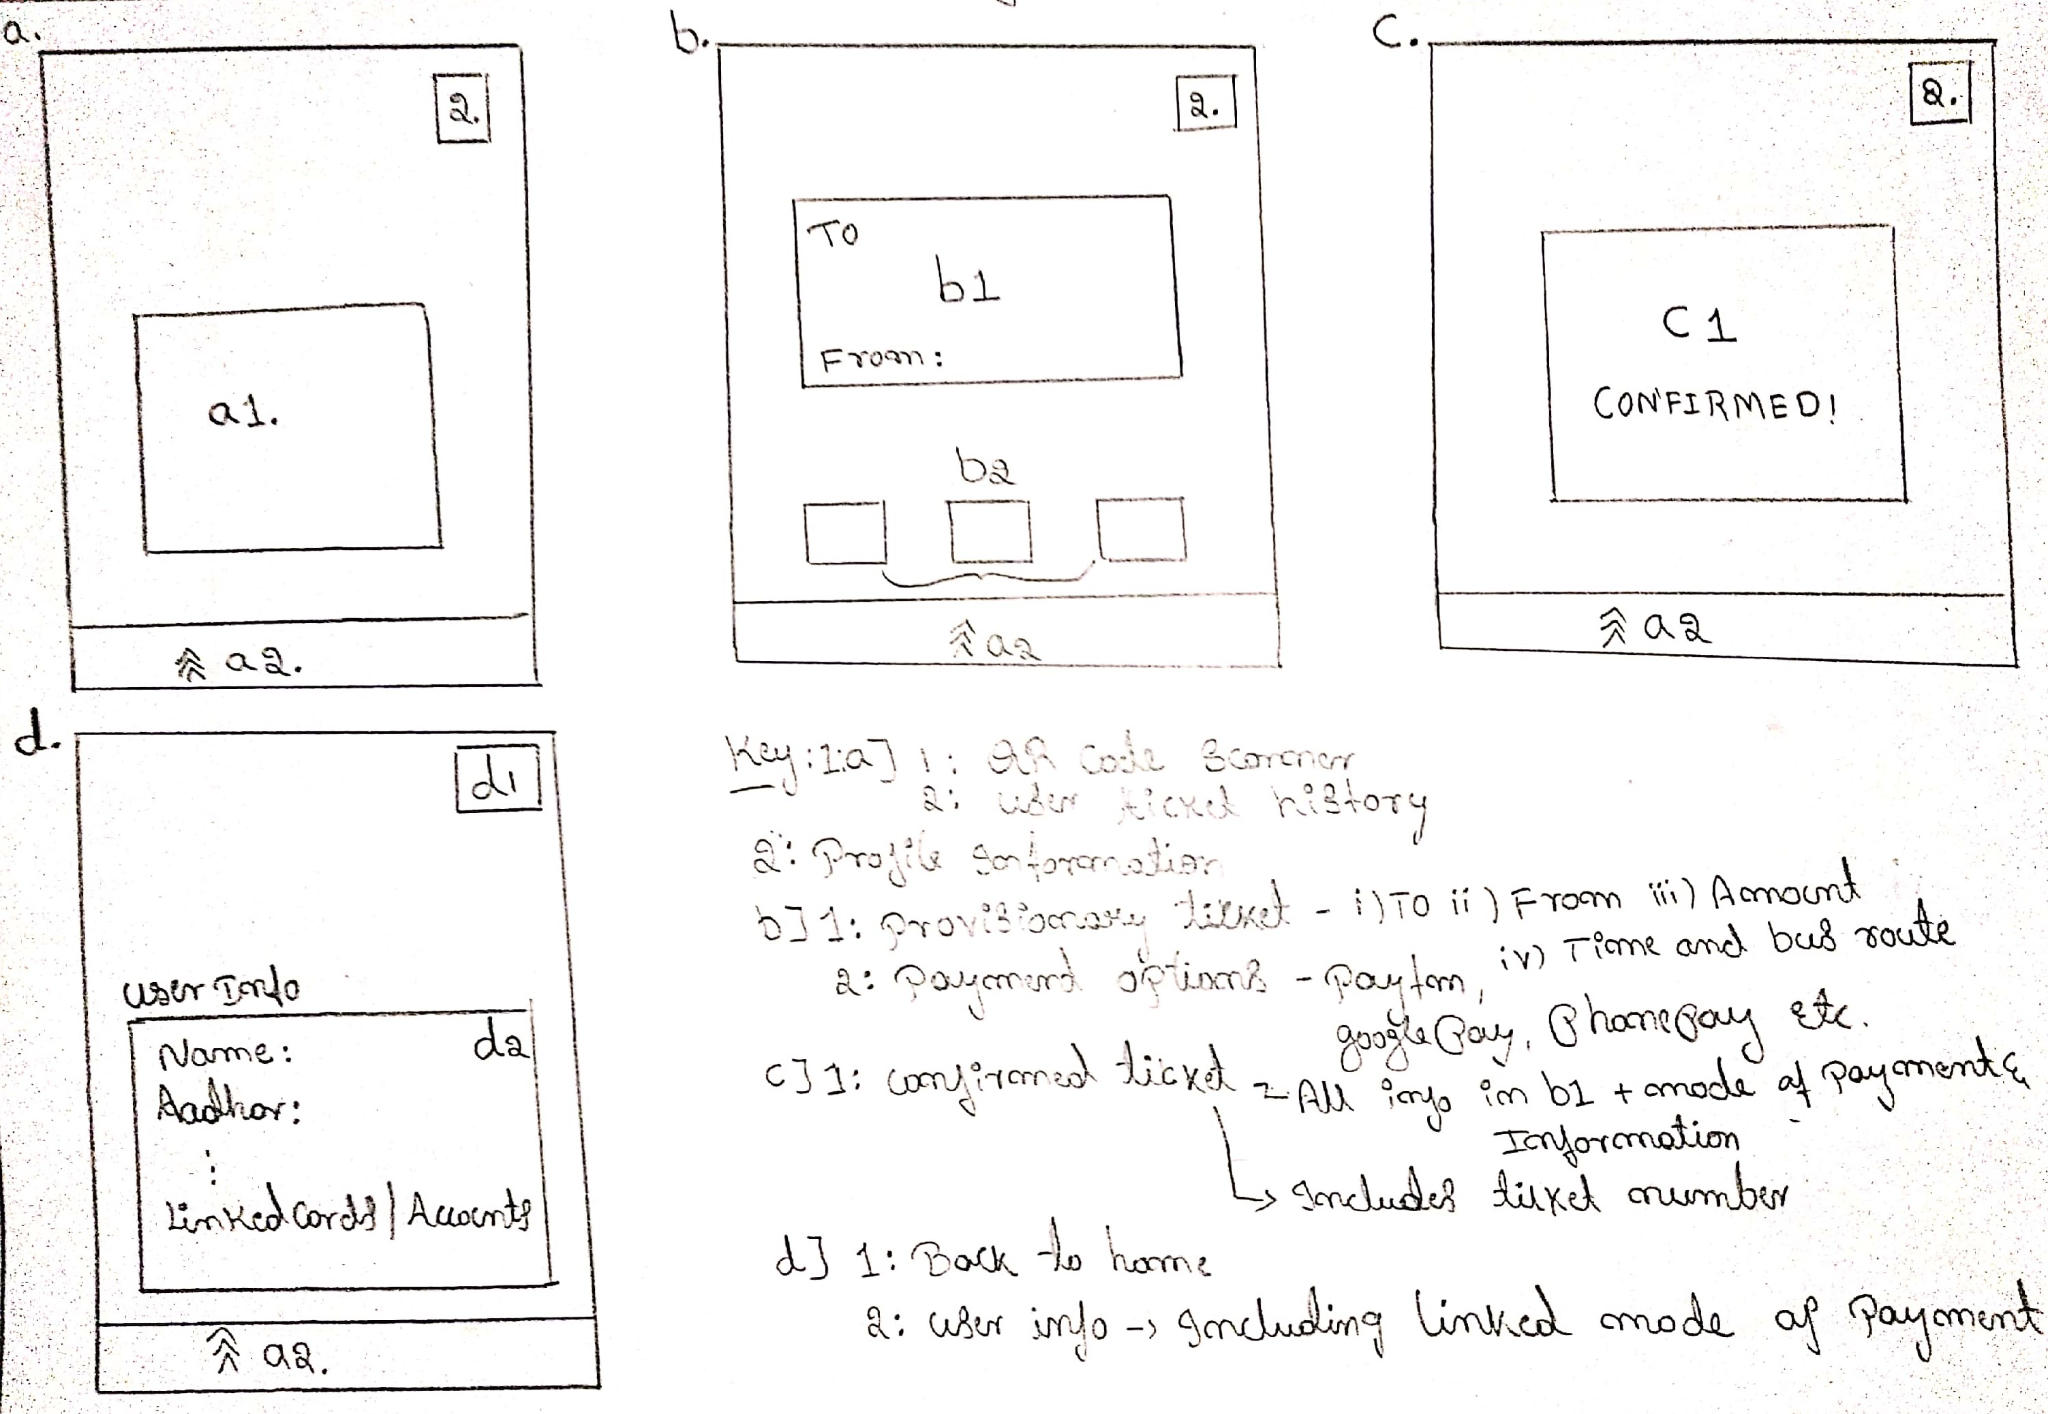 a.
2.
a1.
a2.
b.
2.
TO
b1
From:
b2
a2
C.
2.
C1
CONFIRMED!
a2
d.
d1
user Info
Name:
d2
Aadhar:
⋮
Linked Cards / Accounts
a2.
Key: 1.a] 1: QR Code Scanner
2: User ticket history
2: Profile Information
b] 1: Provisionary ticket - i) TO ii) From iii) Amount
iv) Time and bus route
2: Payment options - Paytm,
google Pay, Phonepay etc.
c] 1: confirmed ticket = All info in b1 + mode of payment &
Information
↳ Includes ticket number
d] 1: Back to home
2: user info → Including linked mode of Payment